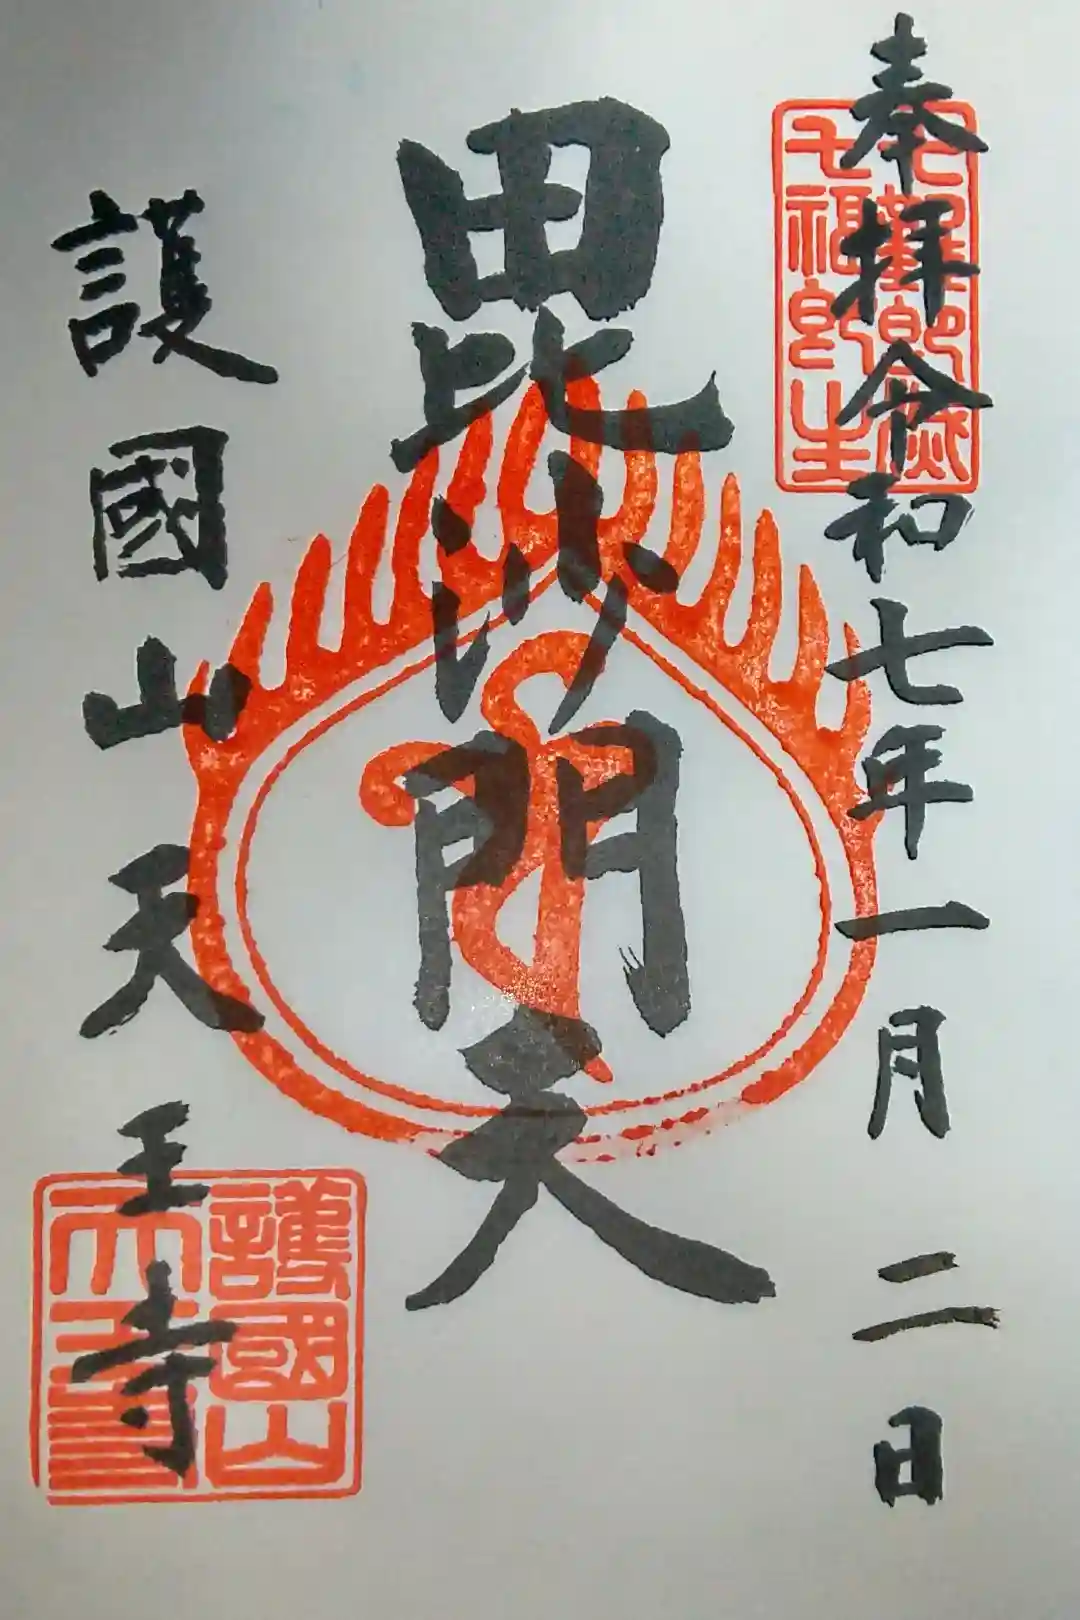 奉拝 令和七年一月二日
七難即滅
七福即生
毘沙門天
護國山天王寺
護國山
天王寺